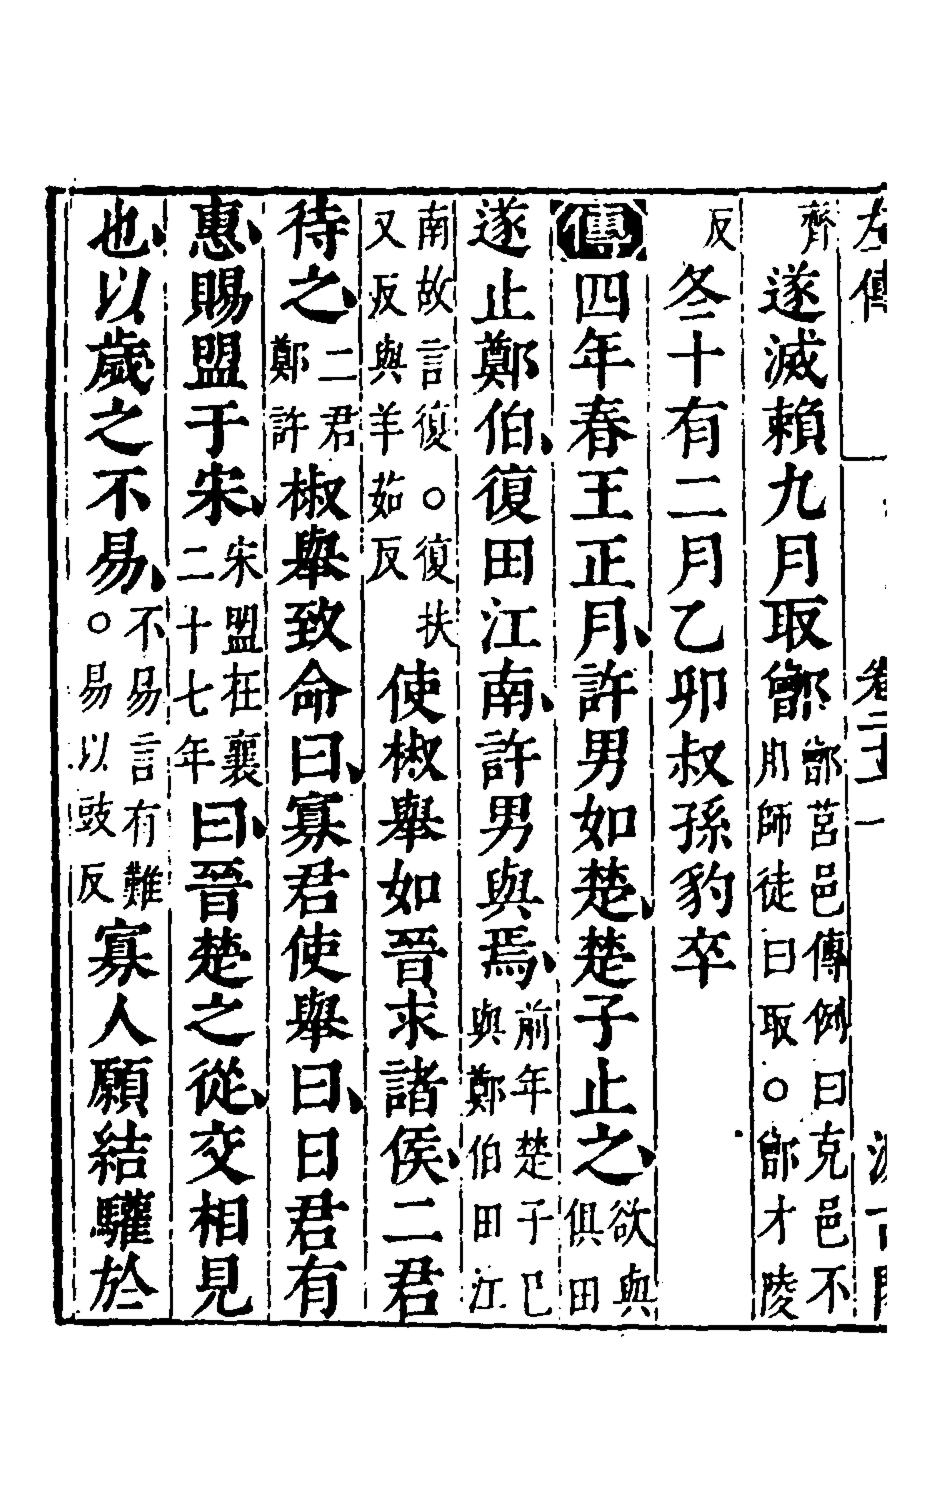 左傳 卷二
齊遂滅賴九月取鄫鄫莒邑傳例曰克邑不用師徒曰取○鄫才陵
反冬十有二月乙卯叔孫豹卒
傳四年春王正月、許男如楚、楚子止之、欲與俱田
遂止鄭伯、復田江南、許男與焉、前年楚子已與鄭伯田江
南故言復○復扶又反與羊茹反使椒舉如晉求諸侯、二君
待之、二君鄭許椒舉致命曰、寡君使舉曰、日君有
惠、賜盟于宋、宋盟在襄二十七年曰、晉楚之從、交相見
也、以歲之不易、不易言有難○易以豉反寡人願結驩於